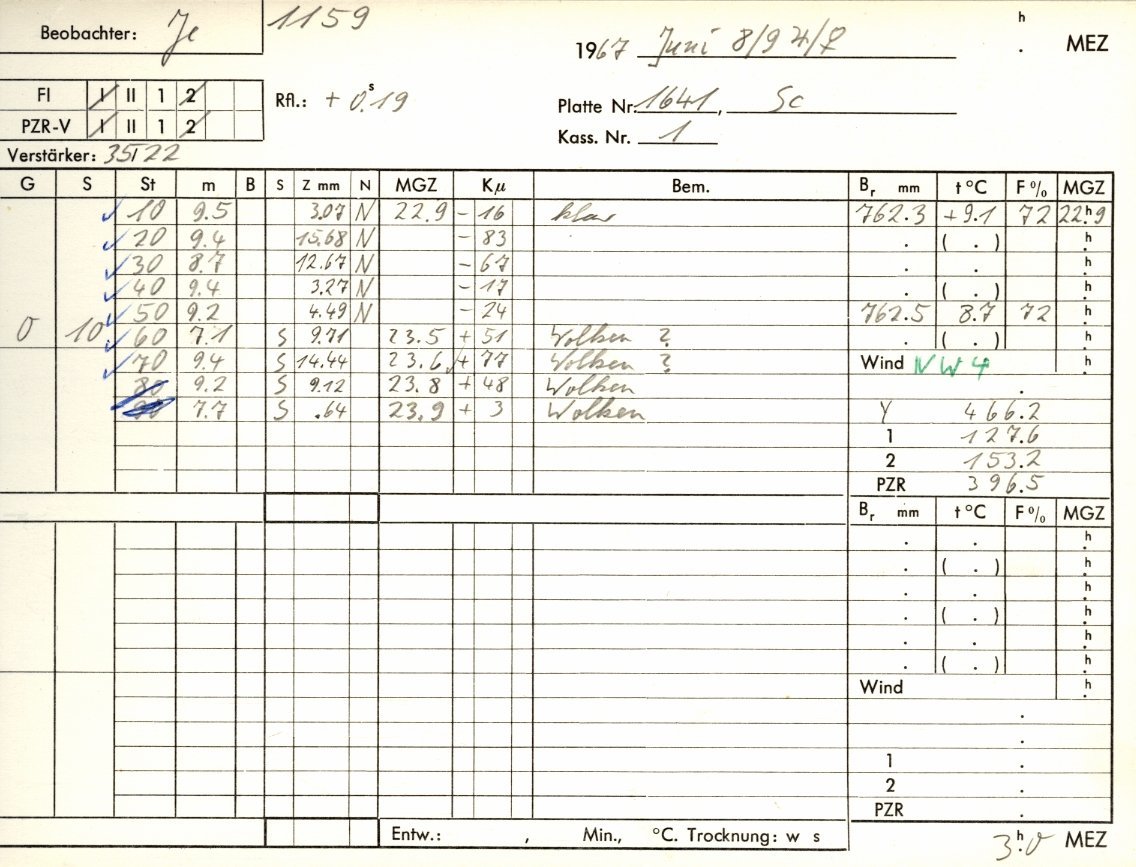 Beobachter: Je 1159
1967 Juni 8/9 ♃/♀ h . MEZ
FI I II 1 2
Rfl.: + 0.ˢ19
Platte Nr. 1641, Sc
PZR-V I II 1 2
Kass. Nr. 1
Verstärker: 35T22
G S St m B S Z mm N MGZ Kμ Bem. Br mm t °C F % MGZ
10 9.5 3.07 N 22.9 - 16 klar 762.3 +9.1 72 22.ʰ9
20 9.4 15.68 N - 83 . ( . ) h.
30 8.7 12.67 N - 67 . . h.
40 9.4 3.27 N - 17 . ( . ) h.
50 9.2 4.49 N - 24 762.5 8.7 72 h.
0 10 60 7.1 S 9.71 23.5 + 51 Wolken ? . ( . ) h.
70 9.4 S 14.44 23.6 + 77 Wolken ? Wind NW 4 h.
80 9.2 S 9.12 23.8 + 48 Wolken .
90 7.7 S .64 23.9 + 3 Wolken Y 466.2
1 127.6
2 153.2
PZR 396.5
Br mm t °C F % MGZ
. . h.
. ( . ) h.
. . h.
. ( . ) h.
. . h.
. ( . ) h.
Wind h.
.
.
1 .
2 .
PZR .
Entw.: , Min., °C. Trocknung: w s 3.ʰ0 MEZ